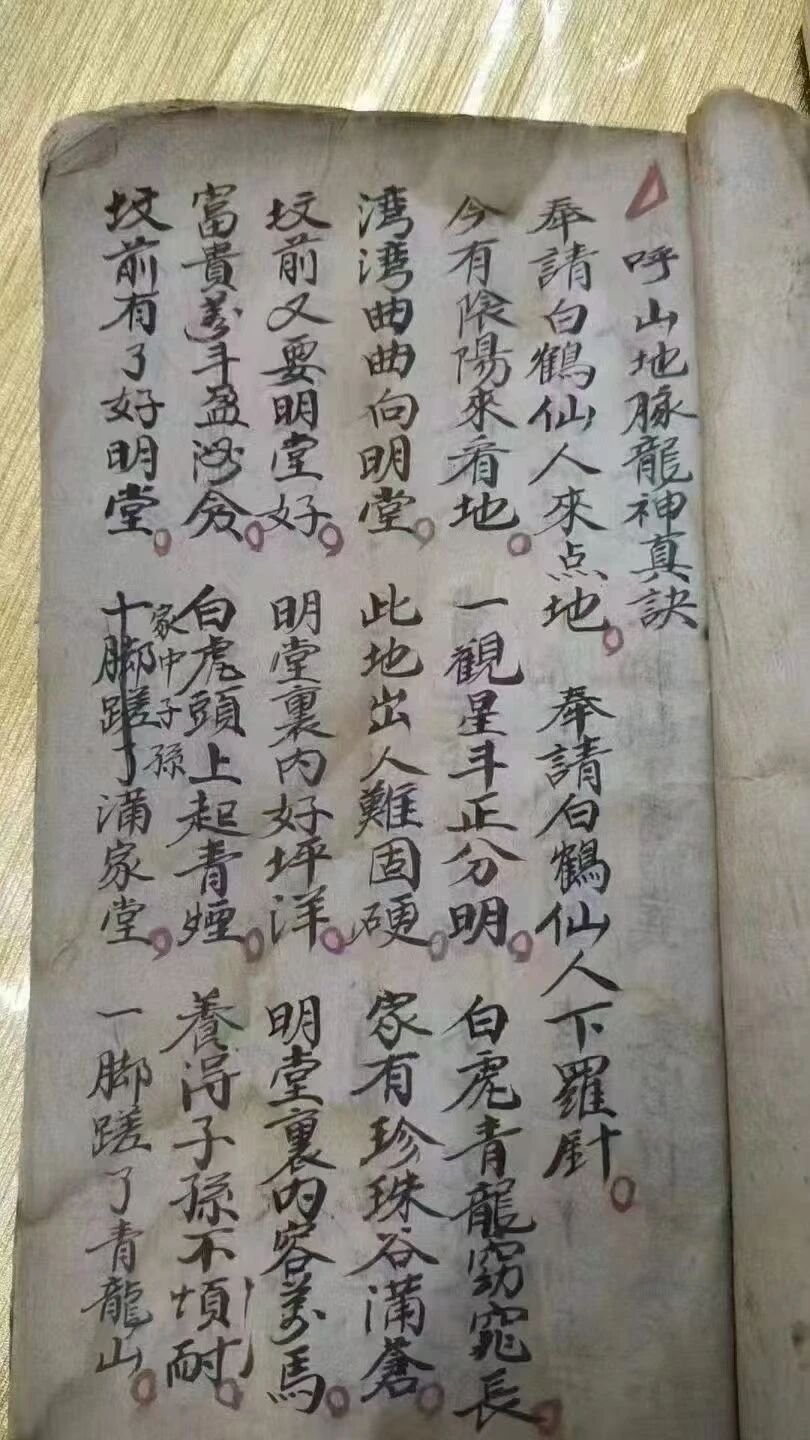 呼山地脉龍神真訣
奉請白鶴仙人來点地。奉請白鶴仙人下羅針。
今有陰陽來看地。一觀星斗正分明。白虎青龍窈窕長。
湾湾曲曲向明堂。此地出人難固硬。家有珍珠谷満蒼。
坟前又要明堂好。明堂裏内好坪洋。明堂裏内容萬馬。
富貴萬斗盈。白虎頭上起青煙。養淂子孫不煩耐。
坟前有了好明堂。十脚蹉了满家堂。一脚蹉了青龍山。
家中子孫